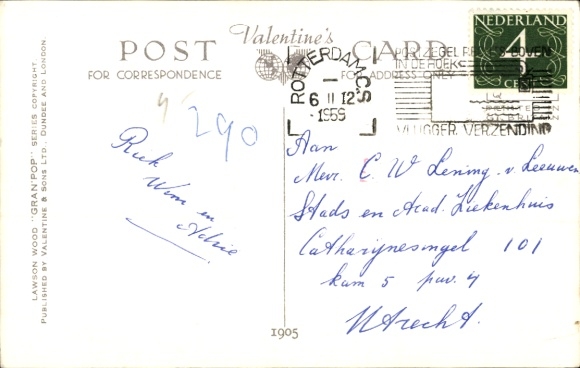 Valentine's
POST CARD
FOR CORRESPONDENCE
FOR ADDRESS ONLY
NEDERLAND
4
CENT
ROTTERDAM C.S
6 II 12
1959
POSTZEGEL RECHTS BOVEN
IN DE HOEK
VLUGGER VERZENDING
290
Wim en
Adrie
Aan
Mevr. C. W. Lening. v. Leeuwen
Stads en Acad. Ziekenhuis
Catharijnesingel 101
kam 5 pav. 4
Utrecht.
1905
LAWSON WOOD "GRAN'POP" SERIES COPYRIGHT.
PUBLISHED BY VALENTINE & SONS LTD., DUNDEE AND LONDON.